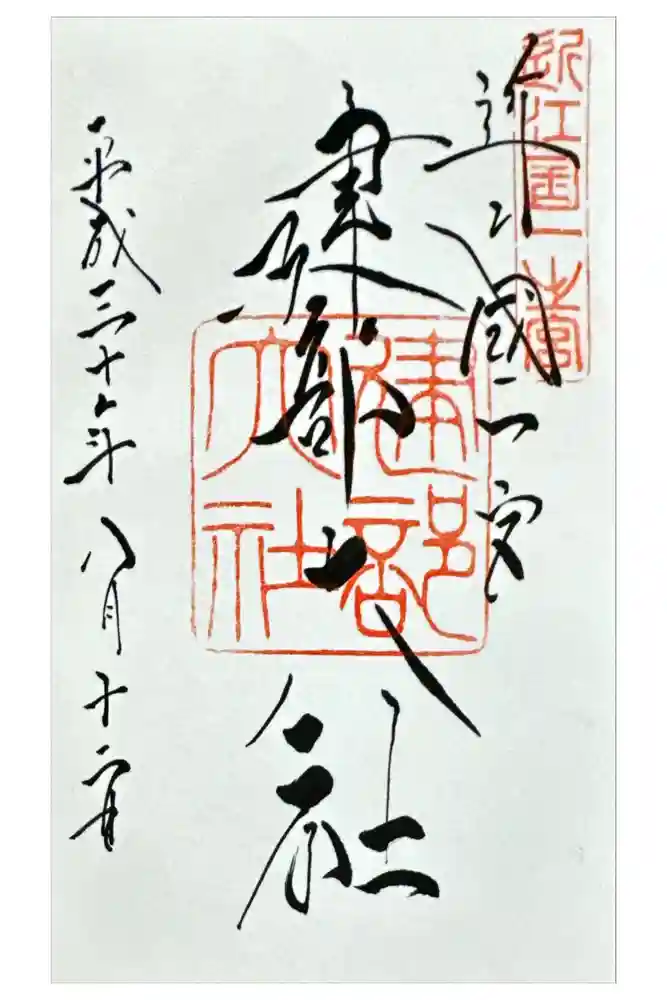 近江國一宮
建部大社
平成三十年八月十二日
近江国一之宮
建部大社